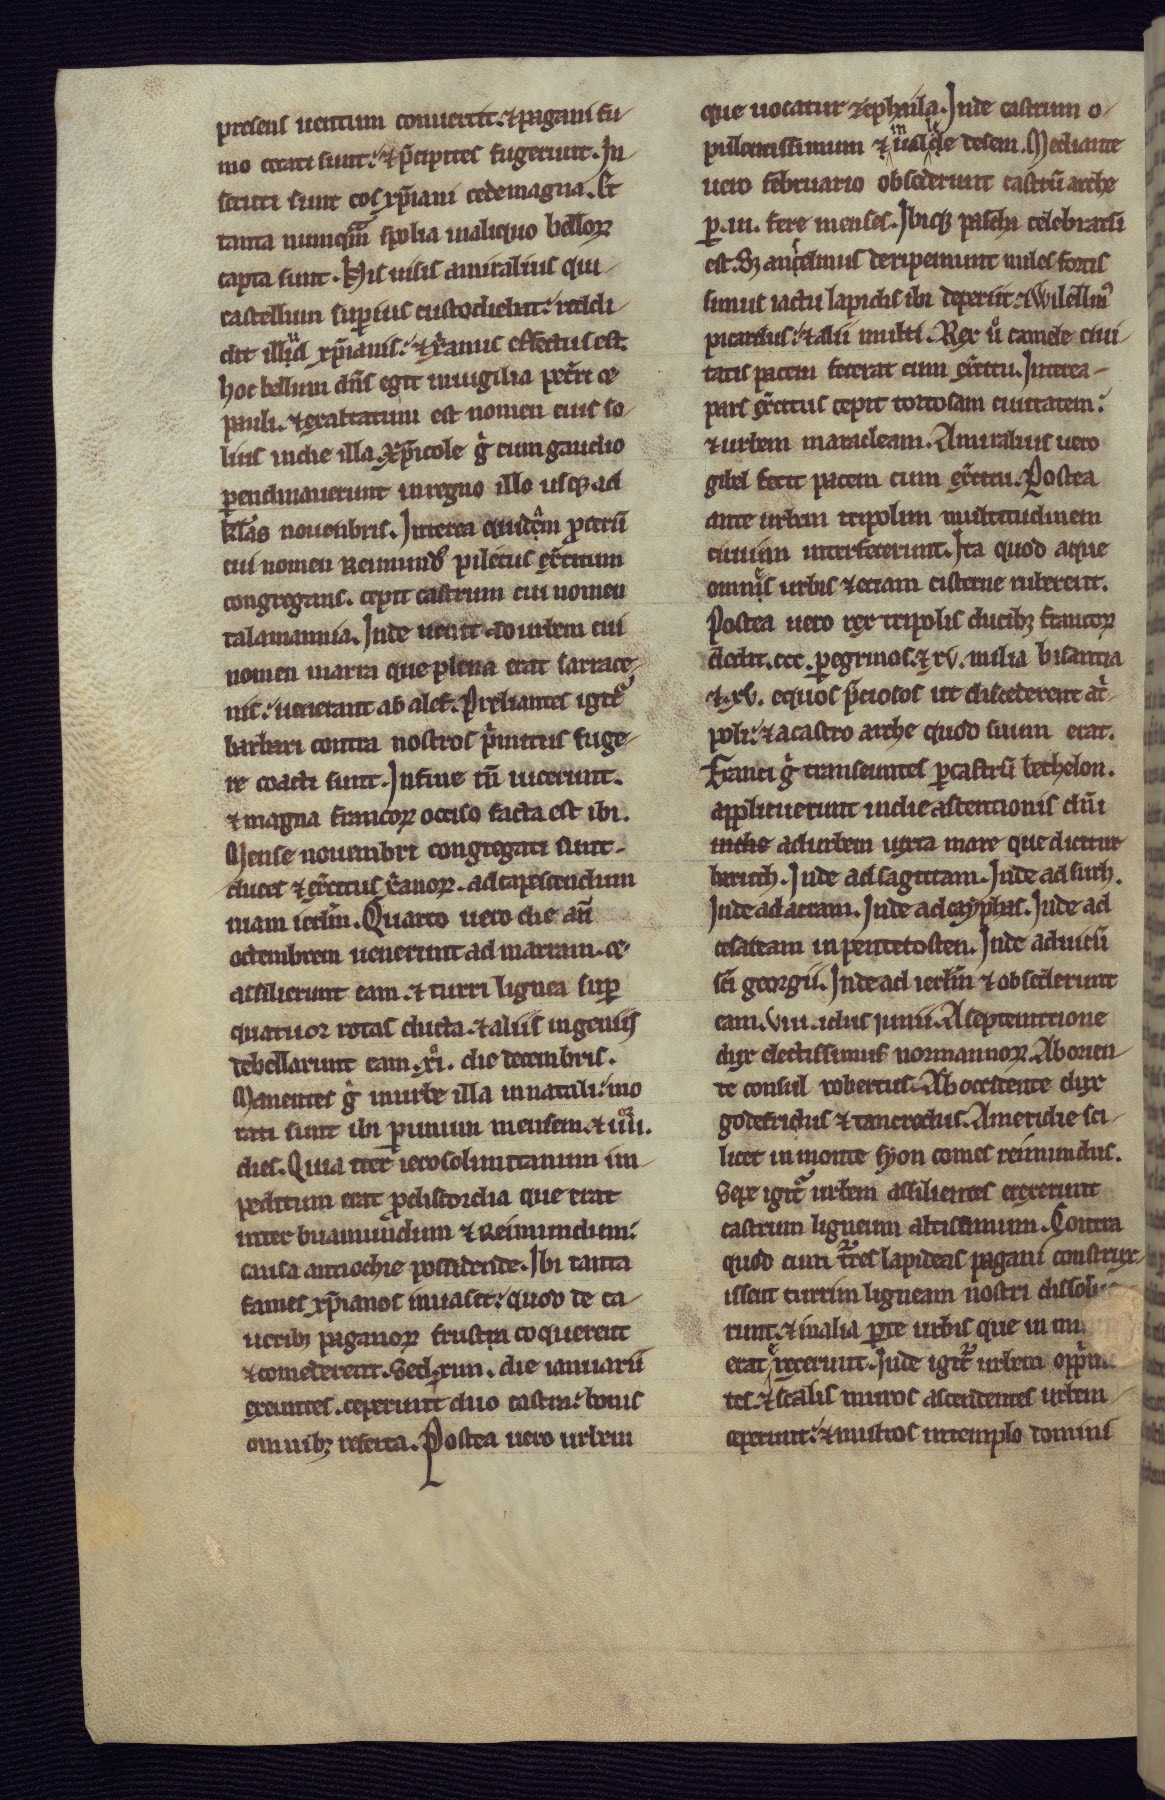 presens uentum conuertit. ⁊ pagani fu-
mo cecati sunt: ⁊ p̄cipites fugerunt. In-
secuti sunt eos xp̄iani cede magna. Et
tanta numq̄m spolia in aliquo belloꝝ
capta sunt. His uisis amiralius qui
castellum superius custodiebat: reddi-
dit illud xp̄ianis: ⁊ xp̄ianus effectus est.
hoc bellum dn̄s egit in uigilia petri ⁊
pauli. ⁊ exaltatum est nomen eius so-
lius in die illa. Xp̄icole g̊ cum gaudio
ꝑendinauerunt in regno illo usqꝫ ad
kl̄as nouenbris. Interea quidam ꝓcerū
cui nomen Reimund᷒ piletus exc̄itum
congregans. cepit castrum cui nomen
talamannia. Inde uenit ad urbem cui
nomen marra que plena erat sarrace-
nis: uenerant ab alef. Preliantes igit᷑
barbari contra nostros p̄mitus fuge-
re coacti sunt. In fine tn̄ uicerunt.
⁊ magna francoꝝ occiso facta est ibi.
Mense nouembri congregati sunt
duces ⁊ exc̄itus xp̄ianoꝝ. ad capescendum
uiam ierl̄m. Quarto uero die an̄
decembrem uenerunt ad marram. ⁊
assilierunt eam. ⁊ turri lignea sup̄
quatuor rotas ducta. ⁊ aliis ingeniis
debellarunt eam. xi. die decembris.
Manentes g̊ in urbe illa in natali: mo
rati sunt ibi ꝑ unum mensem. ⁊ iiii.
dies. Quia iter ierosolimitanum im-
peditum erat ꝓ discordia que erat
inter buamundum ⁊ Reimundum:
causa antiochie possidende. Ibi tanta
fames xp̄ianos inuasit: quod de ca-
ueribꝫ paganoꝝ frusta coquerent
⁊ comederent. Sed xiiii. die ianuarii
exeuntes. ceperunt duo castra: bonis
omnibꝫ referta. Postea uero urbem
que uocatur zephaila. Inde castrum o-
pulentissimum ⁊ in ualle desem. Mediante
uero februario obsederunt castrū arche
ꝑ .iii. fere menses. Ibiqꝫ pascha celebratū
est. Sꝫ anc̄elmus deripemunt miles fortis
simus iactu lapidis ibi deperiit: ⁊ Wilellm᷒
picardus: ⁊ alii multi. Rex ů camele ciui-
tatis pacem fecerat cum exc̄itu. Interea
pars exc̄itus cepit tortosam ciuitatem:
⁊ urbem maracleam. Amiralius uero
gibel fecit pacem cum exc̄itu. Postea
ante urbem tripolim multitudinem
ciuium interfecerunt. Ita quod aque
omnes urbis ⁊ eciam cisterne ruberent.
Postea uero rex tripolis ducibꝫ francoꝝ
dedit .ccc. ꝑegrinos. ⁊ xv. milia bisantia
⁊ .xv. equos p̄ciosos ut discederent a tͥ-
poli: ⁊ a castro arche quod suum erat.
Franci g̊ transeuntes ꝑ castrū bethelon.
applicuerunt in die ascentionis dn̄i
ad urbem iuxta mare que dicitur
beruth. Inde ad sagittam. Inde ad surh.
Inde ad accam. Inde ad cayphas. Inde ad
cesaream in pentecosten. Inde ad uicū
sc̄i georgii. Inde ad ierl̄m ⁊ obsederunt
eam. viii. idus iunii. A septemtrione
dux electissimus normannoꝝ. Ab orien-
te consul robertus. Ab occidente dux
godefridus ⁊ tancredus. A meridie sci-
licet in monte syon comes reimundus.
Sepe igit᷑ urbem assilientes erexerunt
castrum ligneum altissimum. Contra
quod cum tr̄res lapideas pagani construx-
issent turrim ligneam nostri dissolue
runt. ⁊ in alia ꝑte urbis que
erat erexerunt. Inde igit᷑ urbem
tes. ⁊ scalis muros ascendentes urbem
ceperunt: ⁊ multos in templo domini